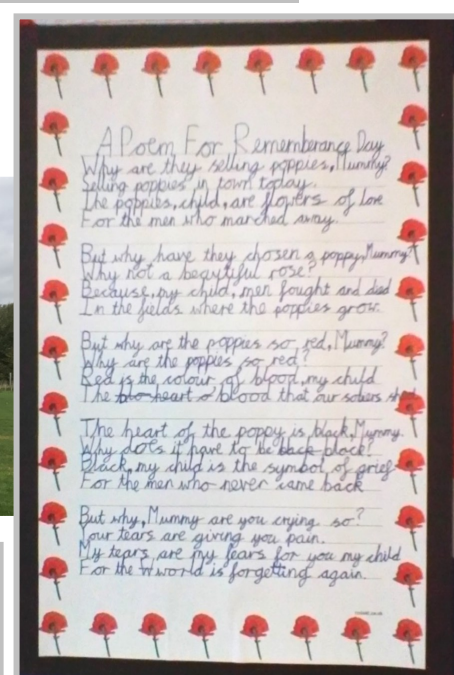 A Poem For Rememberance Day
Why are they selling poppies, Mummy?
Selling poppies in town today.
The poppies, child, are flowers of love
For the men who marched away.
But why have they chosen a poppy, Mummy?
Why not a beautiful rose?
Because, my child, men fought and died
In the fields where the poppies grow.
But why are the poppies so red, Mummy?
Why are the poppies so red?
Red is the colour of blood, my child
The blo heart o blood that our solers shed
The heart of the poppy is black, Mummy.
Why does it have to be back black?
Black, my child is the symbol of grief
For the men who never came back
But why, Mummy are you crying so?
Your tears are giving you pain.
My tears are my fears for you my child
For the W world is forgetting again.